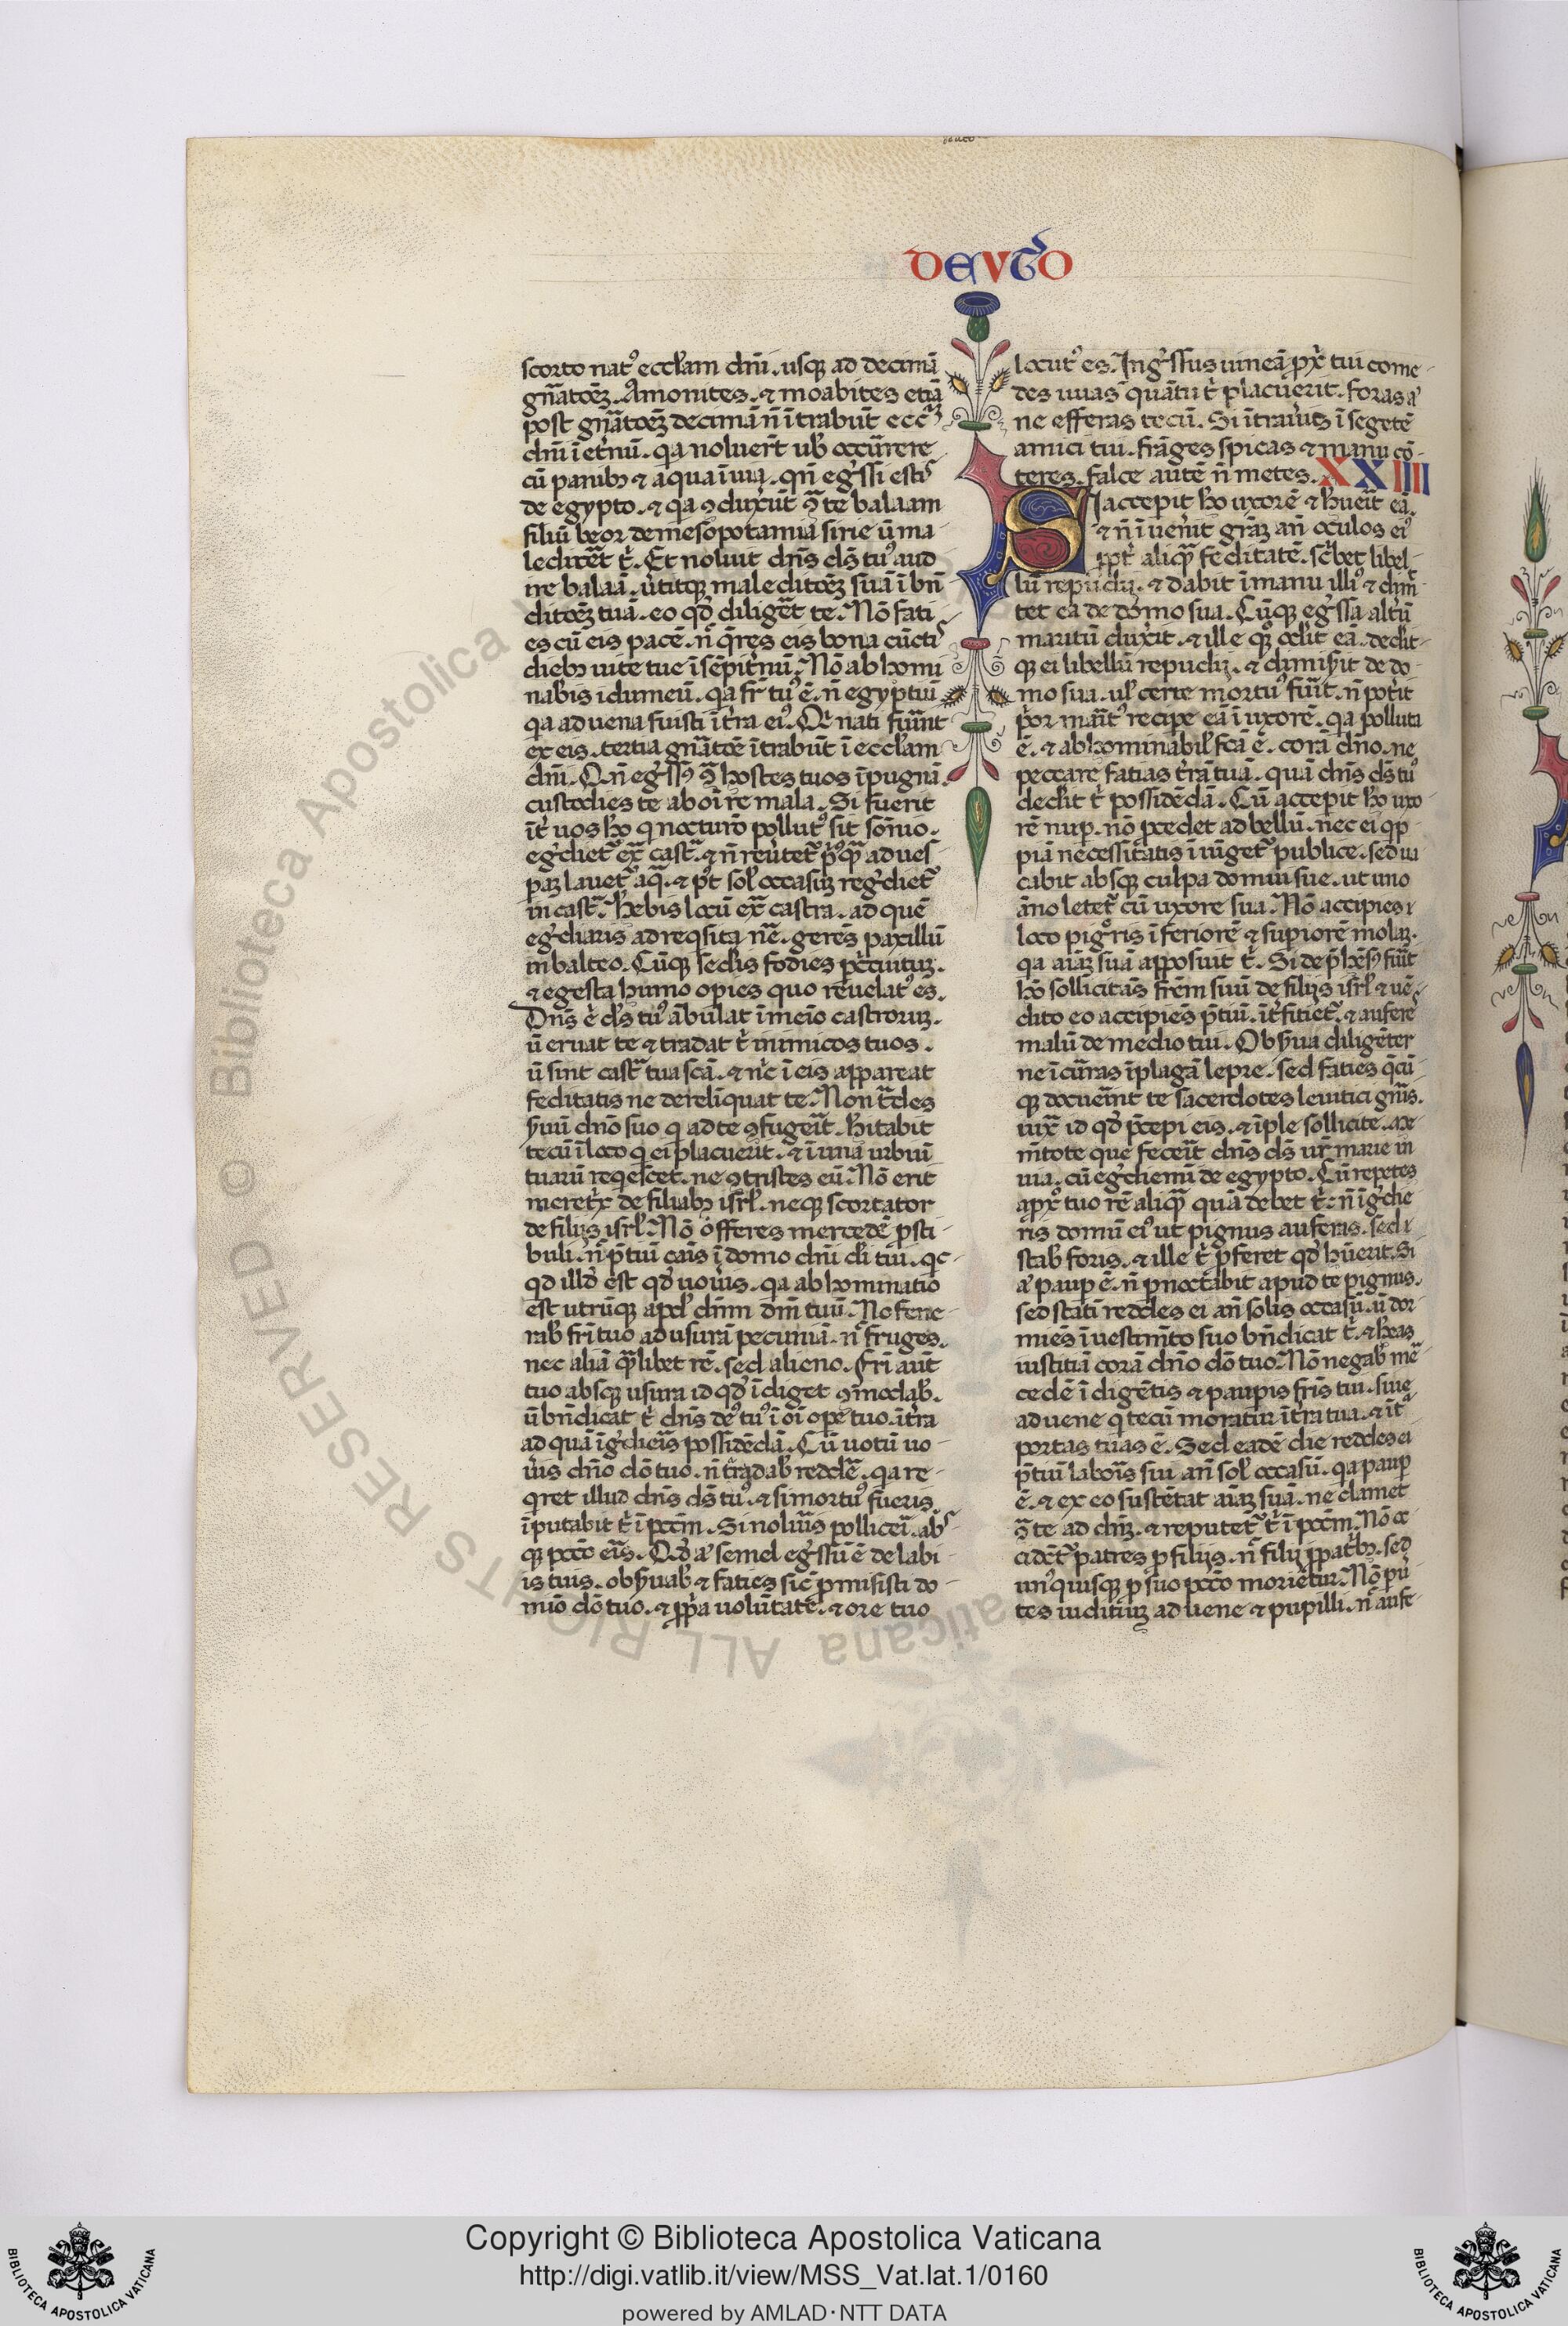 DEUTO
scorto nat⁹ eccl'am dn̄i. usq; ad decimā
gn̄atōeꝫ. Amonites. ⁊ moabites etiā
post gn̄atōeꝫ decimā n̄ ītrabūt ecc̄aꝫ
dn̄i ī et'nū. qa noluer̄t uob' occūrrere
cū panibꝫ ⁊ aqua ī uia. qn̄ eg'ssi estis
de egypto. ⁊ qa ꝯduxer̄ūt ꝯ̄ te balaam
filiū beor de mesopotamia sirie ū ma-
ledicēt t'. Et noluit dn̄s ds̄ tu⁹ aud
ire balaā. ūtitq; maledictōeꝫ suā ī bn̄
dictōeꝫ tuā. eo qd' diliget te. Nō fati
es cū eis pacē. n̄ q̄res eis bona cūctis
diebꝫ uite tue ī sēpit'nū. Nō abhomi
nab'is idumeū. qa fr̄ tu⁹ ē. n̄ egyptiū
qa aduena fuisti ī t'ra ei⁹. Qi nati fuer̄nt
ex eis. tertia gn̄atōe ītrabūt ī eccl'am
dn̄i. Qn̄ eg'ss⁹ ꝯ̄ hostes tuos ī pugnā
custodies te ab oī re mala. Si fuerit
īt' uos hō q nocturō pollut⁹ sit sōnio.
eg'diet' ex̄ cast'. ⁊ n̄ reūtet' p'usq̄ ad ues
paꝫ lauet' aq̄. ⁊ p't sol' occasuꝫ reg'diet'
in cast'. Hēbis locū ex̄ castra. ad quē
eg'diaris ad reqsita nē. gerēs paxillū
in balteo. Cūq; sedis fodies p' c'cuituꝫ.
⁊ egesta humo opies quo reuelat⁹ es.
Dn̄s e' ds̄ tu⁹ ābulat ī meio castroruꝫ.
ū eruat te ⁊ tradat t' inimicos tuos.
ū sint cast' tua scā. ⁊ nc̄ ī eis appareat
feditatis ne derelīquat te. Non t'des
s'uū dn̄o suo q ad te ꝯfugeit. Hitabit
tecū ī loco q ei placuerit. ⁊ ī una urbiū
tuarū reqescet. ne ꝯtristes eū. Nō erit
meret'x de filiabꝫ isrl'. neq; scortator
de filijs isrl'. Nō offeres mercedē psti-
buli. n̄ p'tiū canis ī domo dn̄i di tui. qc-
qd illd' est qd' uou'is. qa abhominatio
est utrūq; apd' dn̄m dm̄ tuū. No fene-
rab' fri tuo ad usurā pecuniā. n̄ fruges.
nec aliā q̄libet rē. sed alieno. Fri aūt
tuo absq; usura id qd' īdiget ꝯmodab'.
ū bn̄dicat t' dn̄s de⁹ tu⁹ ī oī ope tuo. ī t'ra
ad quā īg'dieis possidēdā. Cū uotū uo-
u'is dn̄o dō tuo. n̄ t'dab' redde'. qa re-
qret illud dn̄s ds̄ tu⁹. ⁊ si mortu⁹ fueris
īputabit t' ī pcc̄m. Si nolu'is polliceī. abs-
q; pcc̄o eis. Qd' a' semel eg'ssū ē de labi-
is tuis. obs'uab' ⁊ faties sic' pmisisti do-
mīo dō tuo. ⁊ ppa uolūtate. ⁊ ore tuo
locut⁹ es. Ing'ssus uineā px' tui come-
des uuas quātū t' placuerit. foras a'
ne efferas tecū. Si ītrau'is ī segetē
amici tui. frāges spicas ⁊ manu cō-
teres. falce autē n̄ metes. XXIIII
SI accepit hō uxorē ⁊ h'ueit eā.
⁊ n̄ īuen'it graꝫ an̄ oculos ei⁹
ppt' aliq̄ feditatē. sc'bet libel-
lū repudij. ⁊ dabit ī manu illi⁹ ⁊ dimit-
tet eā de domo sua. Cūq; eg'ssa alt'ū
maritū dux'it. ⁊ ille q; od'it eā. dedit-
q; ei libellū repudij. ⁊ dimis'it de do-
mo sua. ul' certe mortu⁹ fu'it. n̄ pot'it
p'or mait⁹ recipe eā ī uxorē. qa polluta
ē. ⁊ abhominabil' fcā ē. corā dn̄o. ne
peccare fatias t'rā tuā. quā dn̄s ds̄ tu⁹
ded'it t' possidēdā. Cū accepit hō uxo
rē nup. nō pcedet ad bellū. nec ei qp-
piā necessitatis ī iūget' publice. sed ua
cabit absq; culpa domui sue. ut uno
āno letet' cū uxore sua. Nō accipies ı
loco pig'ris īferiorē ⁊ supiorē molaꝫ.
qa aiaꝫ suā apposuit t'. Si dep'hēs⁹ fu'it
hō sollicitās frēm suū de filijs isrl' ⁊ uē-
dito eo accipiēs p'tiū. īt'fitiet'. ⁊ aufers
malū de medio tui. Obs'ua diligēter
ne īcurras īplagā lepre. sed faties q̄cū
q; docueīnt te sacerdotes leuitici gn̄is.
iux' id qd' p'cepi eis. ⁊ īple sollicite. me
mtote que feceit dn̄s ds̄ ur̄ marie in
uia. cū eg'diemī de egypto. Cū repetes
a px' tuo rē aliq̄ quā debet t'. n̄ īg'die
ris domū ei⁹ ut pignus auferas. sed ı
stab' foris. ⁊ ille t' p'feret qd' hūerit. Si
a' paup ē. n̄ pnoctabit apud te pignus.
sed stati reddes ei an̄ solis occasū. ū dor
miēs ī uestimto suo bn̄dicat t'. ⁊ hēas
iustitiā corā dn̄o dō tuo. Nō negab' me'-
cedē ī digētis ⁊ paupis fris tui. siue
aduene q tecū moratur ī t'ra tua. ⁊ īt'a
portas tuas ē. Sed eadē die reddes ei
p'tiū labois sui an̄ sol' occasū. qa paup
ē. ⁊ ex eo sustētat aiaꝫ suā. ne clamet
ꝯ̄ te ad dn̄ꝫ. ⁊ reputet' t' ī pcc̄m. Nō oc
cidēt' patres p filijs. n̄ filij p pat'bꝫ. sed
un⁹quisq; p suo pcc̄o morietur. Nō pu'
tes iuditiuꝫ aduene ⁊ pupilli. n̄ aufe-
© Biblioteca Apostolica Vaticana ALL RIGHTS RESERVED
Copyright © Biblioteca Apostolica Vaticana
http://digi.vatlib.it/view/MSS_Vat.lat.1/0160
powered by AMLAD·NTT DATA
BIBLIOTECA APOSTOLICA VATICANA
BIBLIOTECA APOSTOLICA VATICANA